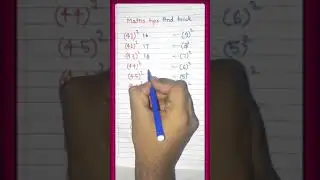 Maths tips And trick
(41)² 16 - (9)²
(42)² 17 - (8)²
(43)² 18 - (7)²
(44)² - (6)²
(45)² - (5)²
(6)²
(5)²